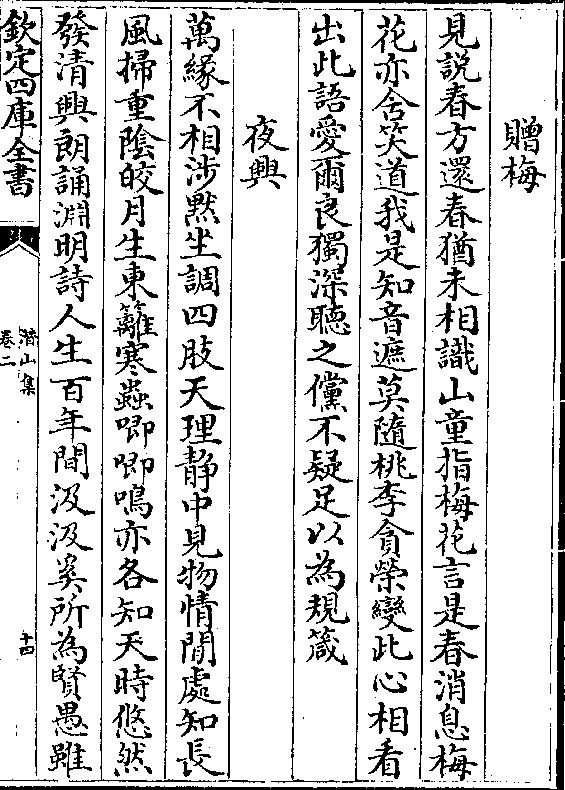 贈梅
見説春方還春猶未相識山童指梅花言是春消息梅
花亦含笑道我是知音遮莫隨桃李貪榮變此心相看
出此語愛爾良獨深聽之儻不疑足以為規箴
夜興
萬緣不相涉黙坐調四肢天理静中見物情閒處知長
風掃重陰皎月生東籬寒蟲唧唧鳴亦各知天時悠然
發清興朗誦淵明詩人生百年間汲汲奚所為賢愚雖
欽定四庫全書
潛山集
卷二
十四